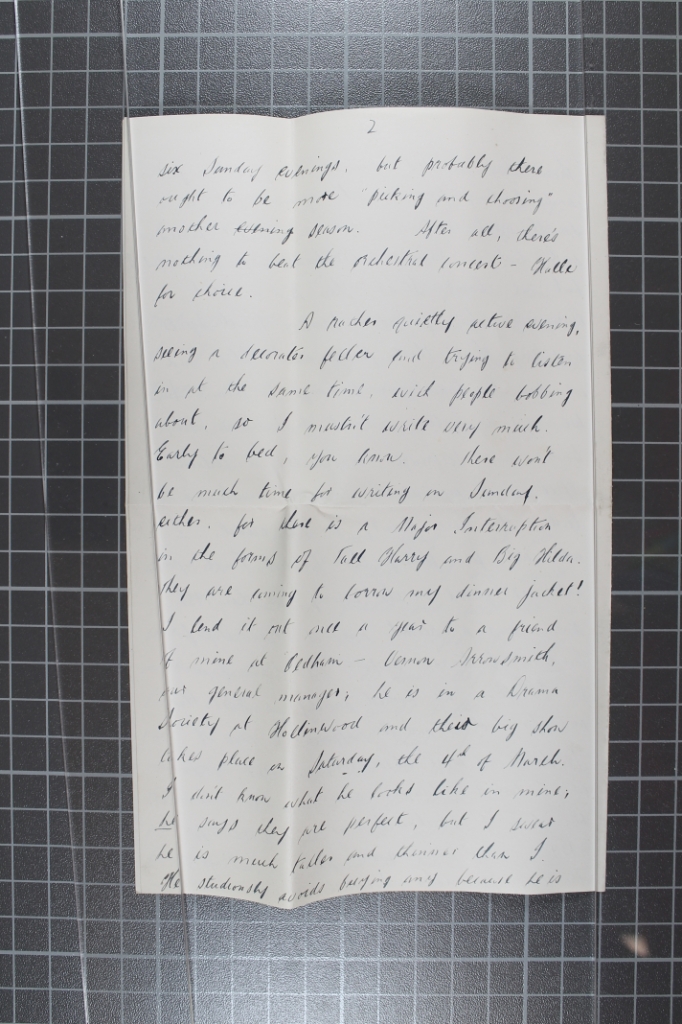 2
six Sunday evenings, but probably there
ought to be more "picking and choosing"
another evening season. After all, there's
nothing to beat the orchestral concert - Halle
for choice.
A rather quietly active evening,
seeing a decorator feller and trying to listen
in at the same time, with people bobbing
about, so I mustn't write very much.
Early to bed, you know. There won't
be much time for writing on Sunday,
either, for there is a Major Interruption
in the forms of Tall Harry and Big Hilda.
They are coming to borrow my dinner jacket!
I lend it out once a year to a friend
of mine at Oldham - Vernon Arrowsmith,
our general manager; he is in a Drama
Society at Hollinwood and their big show
takes place on Saturday, the 4th of March.
I don't know what he looks like in mine;
he says they are perfect, but I swear
he is much taller and thinner than I.
He studiously avoids buying any because he is